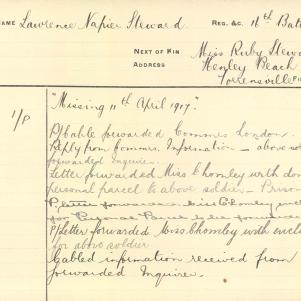 NAME Lawrence Napier Steward REG. &C. 11th Batt
NEXT OF KIN Miss Ruby Stew
ADDRESS Henley Beach
Torrensville
I/P
"Missing 11th April 1917".
P/Cable forwarded Commrs London.
Reply from Commrs. Information - above sol
forwarded Inquirer.
Letter forwarded Miss Chomley with don
personal parcel to above soldier - Prison
P/Letter forwarded Miss Chomley
for
P/Letter forwarded Miss Chomley with encl
for above soldier
Cabled information received from
forwarded Inquirer.